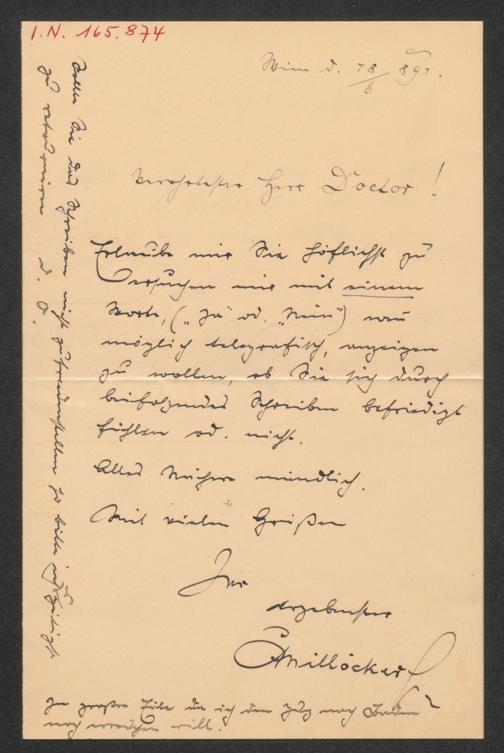 I.N. 165.874
Wien d. 18/6 891.
Verehrtester Herr Doctor!
Erlaube mir Sie höflichst zu
ersuchen mir mit einem
Worte, („Ja" od. „Nein") wo
möglich telegrafisch, anzeigen
zu wollen, ob Sie sich durch
beifolgendes Schreiben befriedigt
fühlen od. nicht.
Alles Nähere mündlich.
Mit vielen Grüßen
Ihr
ergebenster
CMillöcker
In großer Eile da ich den Zug nach Baden
noch erreichen will.
Sollte Sie das Schreiben nicht zufriedenstellen so bitte
zu retourniren d. O.